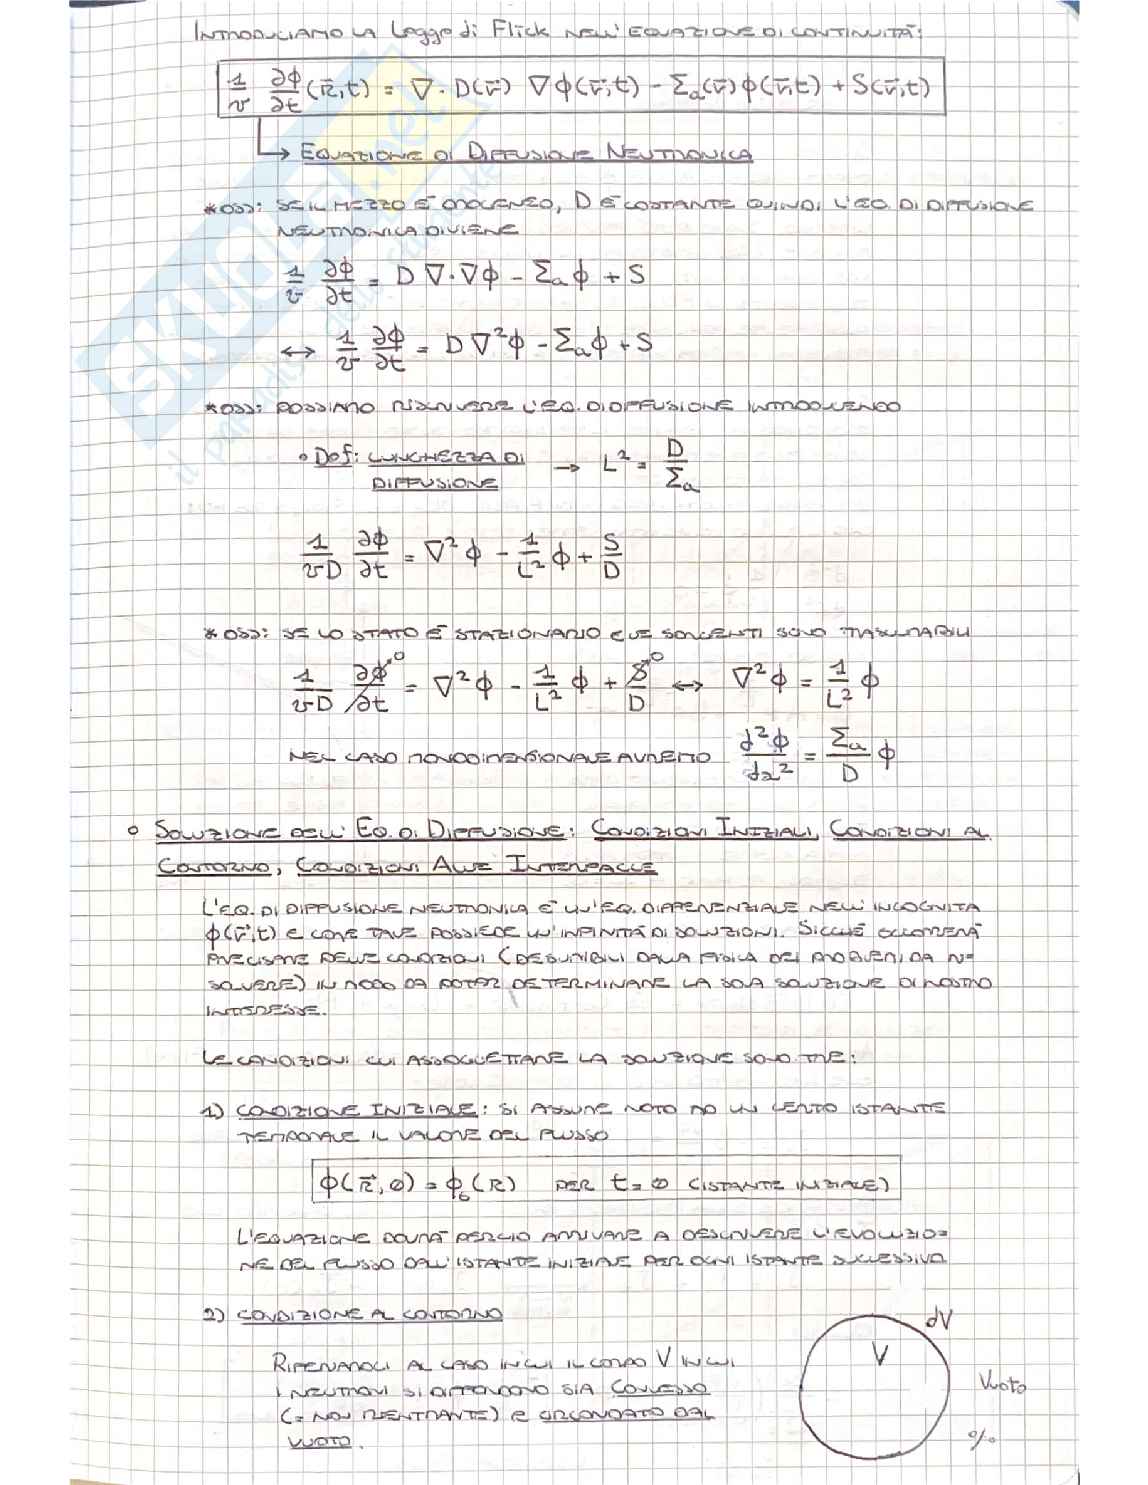 INTRODUCIAMO LA Legge di Flick NELL'EQUAZIONE DI CONTINUITÀ:
1/v ∂ϕ/∂t (r⃗,t) = ∇·D(r⃗) ∇ϕ(r⃗,t) - Σa(r⃗)ϕ(r⃗,t) + S(r⃗,t)
→ EQUAZIONE DI DIFFUSIONE NEUTRONICA
*OSS: SE IL MEZZO È OMOGENEO, D È COSTANTE QUINDI L'EQ. DI DIFFUSIONE
NEUTRONICA DIVIENE
1/v ∂ϕ/∂t = D ∇·∇ϕ - Σaϕ + S
↔ 1/v ∂ϕ/∂t = D∇²ϕ - Σaϕ + S
*OSS: POSSIAMO RISCRIVERE L'EQ. DI DIFFUSIONE INTRODUCENDO
• Def: LUNGHEZZA DI → L² = D/Σa
DIFFUSIONE
1/vD ∂ϕ/∂t = ∇²ϕ - 1/L² ϕ + S/D
*OSS: SE LO STATO È STAZIONARIO E LE SORGENTI SONO TRASCURABILI
1/vD ∂ϕ/∂t⁰ = ∇²ϕ - 1/L² ϕ + S⁰/D ↔ ∇²ϕ = 1/L² ϕ
NEL CASO MONODIMENSIONALE AVREMO d²ϕ/dx² = Σa/D ϕ
• SOLUZIONE DELL'EQ. DI DIFFUSIONE: CONDIZIONI INIZIALI, CONDIZIONI AL
CONTORNO, CONDIZIONI ALLE INTERFACCE
L'EQ. DI DIFFUSIONE NEUTRONICA È UN'EQ. DIFFERENZIALE NELL'INCOGNITA
ϕ(r⃗,t) E COME TALE POSSIEDE UN'INFINITÀ DI SOLUZIONI. SICCHÈ OCCORRERÀ
PRECISARE DELLE CONDIZIONI (DESUMIBILI DALLA FISICA DEI PROBLEMI DA RI-
SOLVERE) IN MODO DA POTER DETERMINARE LA SOLA SOLUZIONE DI NOSTRO
INTERESSE.
LE CONDIZIONI CUI ASSOGGETTARE LA SOLUZIONE SONO TRE:
1) CONDIZIONE INIZIALE: SI ASSUME NOTO AD UN CERTO ISTANTE
TEMPORALE IL VALORE DEL FLUSSO
ϕ(r⃗,0) = ϕ₀(r) PER t=0 (ISTANTE INIZIALE)
L'EQUAZIONE DOVRÀ PERCIÒ ARRIVARE A DESCRIVERE L'EVOLUZIO=
NE DEL FLUSSO DALL'ISTANTE INIZIALE PER OGNI ISTANTE SUCCESSIVO
2) CONDIZIONE AL CONTORNO
dV
V
RIFERIAMOCI AL CASO IN CUI IL CORPO V IN CUI
I NEUTRONI SI DIFFONDONO SIA CONVESSO
Vuoto
(= NON RIENTRANTE) E CIRCONDATO DAL
VUOTO.
%.
SKUOLA.net
il paradiso dello studente